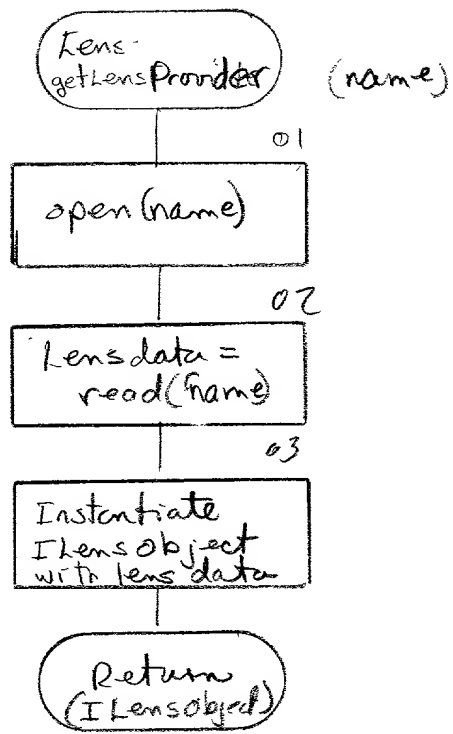 ILens-
getLensProvider (name)
01
open(name)
02
Lensdata =
read(name)
03
Instantiate
ILensObject
with lens data
Return
(ILensobject)